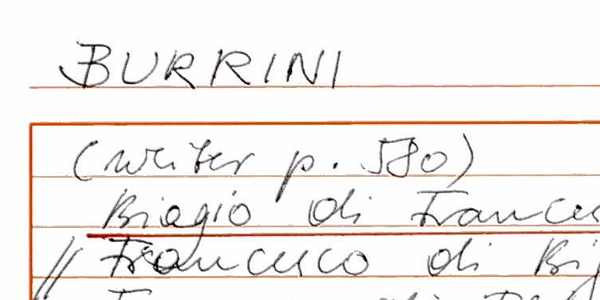 BURRINI
(writer p. 580)
Biagio di Frances
// Francesco di Bi